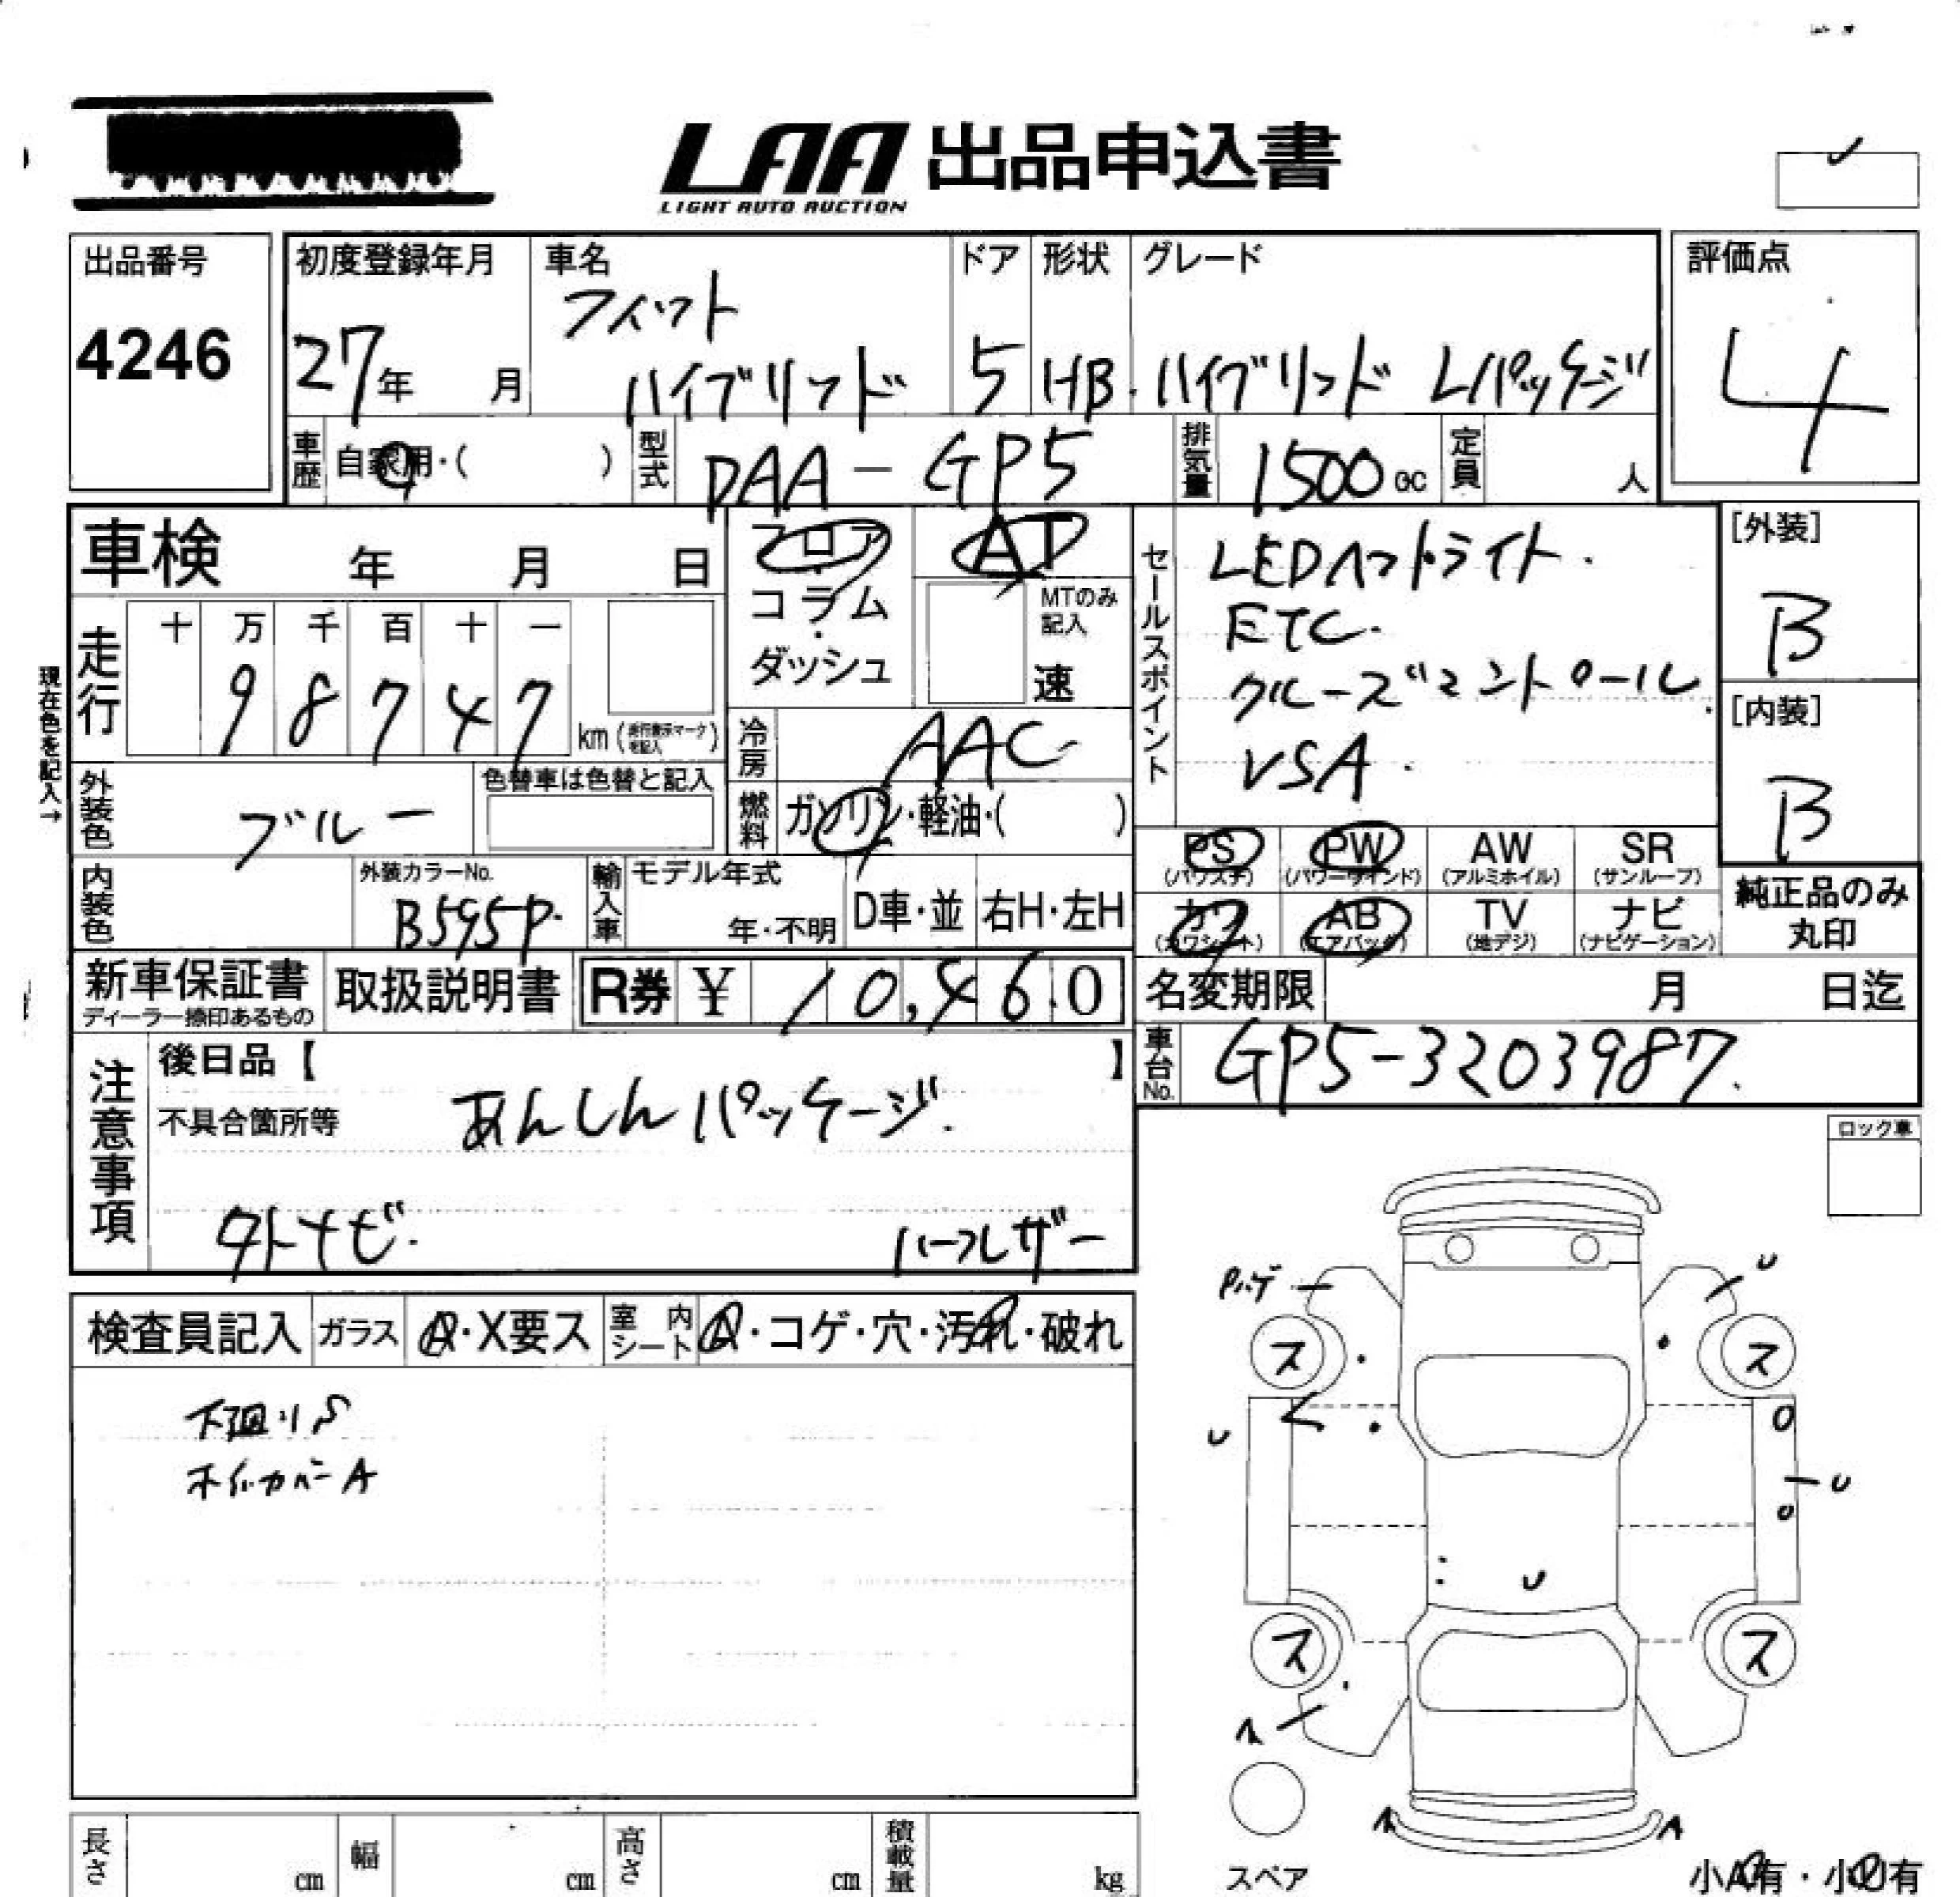 LAA 出品申込書
LIGHT AUTO AUCTION
出品番号
4246
初度登録年月
27年 月
車名
フィット
ハイブリッド
ドア
5
形状
HB
グレード
ハイブリッド Lパッケージ
評価点
4
車歴 自家用・( )
型式 DAA-GP5
排気量 1500cc
定員 人
車検 年 月 日
フロア・コラム・ダッシュ
AT
MTのみ記入
速
セールスポイント
LEDヘッドライト.
ETC.
クルーズコントロール
VSA.
[外装]
B
[内装]
B
現在色を記入→
走行
十 万 千 百 十 一
9 8 7 4 7
km(走行表示マークを記入)
冷房 AAC
燃料 ガソリン・軽油・( )
外装色 ブルー
色替車は色替と記入
内装色
外装カラーNo.
B595P.
輸入車
モデル年式
年・不明
D車・並
右H・左H
PS (パワステ)
PW (パワーウインド)
AW (アルミホイル)
SR (サンルーフ)
カワ (カワシート)
AB (エアバッグ)
TV (地デジ)
ナビ (ナビゲーション)
純正品のみ
丸印
新車保証書
ディーラー捺印あるもの
取扱説明書
R券 ¥ 10,460
名変期限 月 日迄
車台No. GP5-3203987.
注意事項
後日品【 】
不具合箇所等
あんしんパッケージ.
外ナビ.
ハーフレザー
ロック車
検査員記入
ガラス A・X要ス
室内シート A・コゲ・穴・汚れ・破れ
下廻りS
ホイルカバーA
Pハゲ
U
ス ス
U
U
U
ス ス
スペア
小A有・小U有
長さ cm
幅 cm
高さ cm
積載量 kg